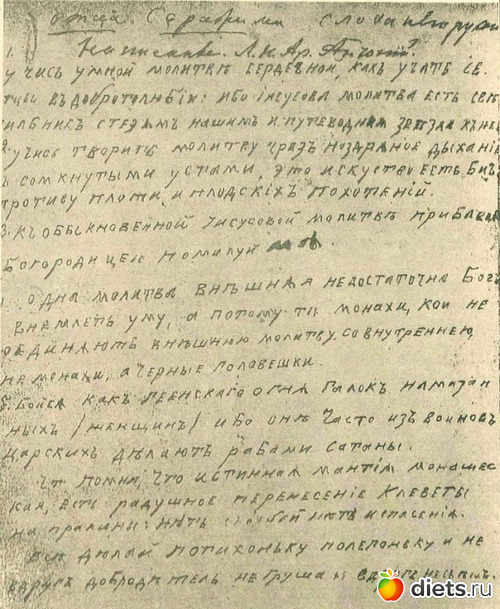 отца Серафима слова его руки
1. Написание
учись умной молитвѣ сердечной, какъ учатъ св.
отцы въ добротолюбіи: ибо Іисусова молитва есть свѣ
тильникъ стезямъ нашимъ и путеводная звѣзда къ неб
учись творить молитву чрезъ ноздряное дыханіе
съ сомкнутыми устами, это искуство есть бичъ
противу плоти и плодскихъ похотеній.
3. къ обыкновенной Іисусовой молитвѣ прибавля
Богородицею помилуй мя.
одна молитва внѣшняя недостаточна Богъ
внемлетъ уму, а потому тѣ монахи, кои не
соединяютъ внѣшнюю молитву со внутреннею,
не монахи, а черные головешки.
бойся какъ гееннскаго огня галокъ намазан
ныхъ /женщинъ/ ибо онѣ часто изъ воиновъ
царскихъ дѣлаютъ рабами сатаны.
помни, что истинная мантія монашес
кая, есть радушное перенесеніе клеветы
на пралины: нѣтъ скорбей нѣтъ и спасенія.
все дѣлай потихоньку полегоньку и не
вдругъ добродѣтель не груша ее вдругъ не съѣшь.
diets.ru